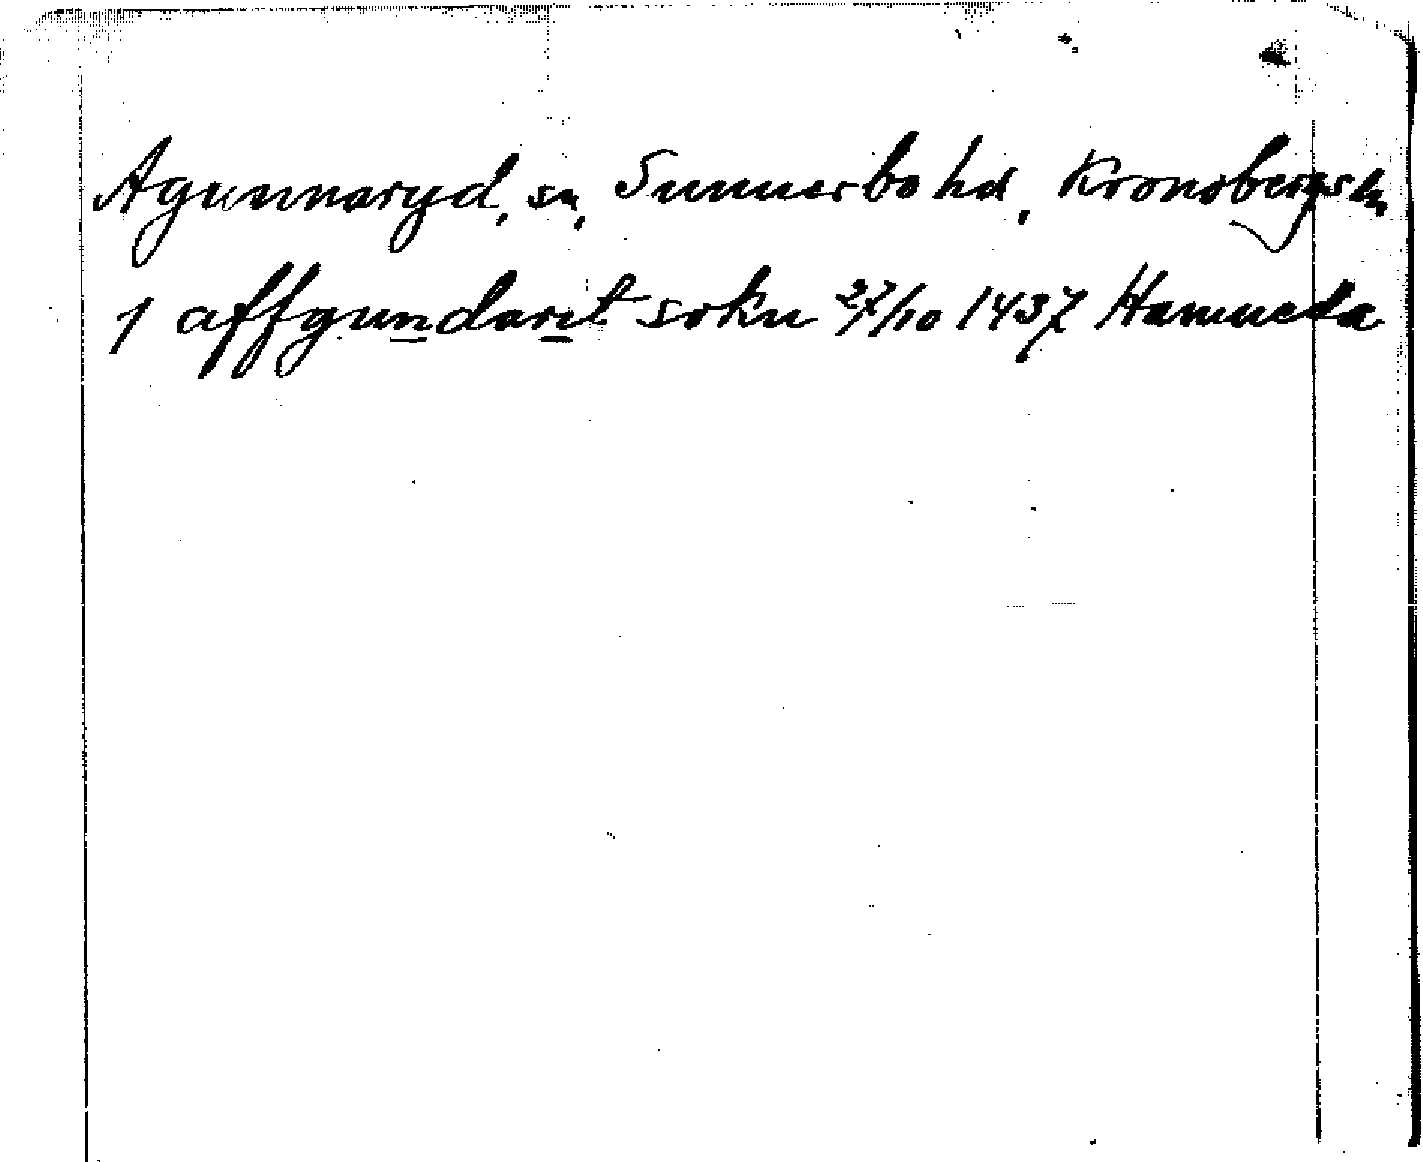 Agunnaryd, sn, Sunnerbo hd, Kronobergs ln
1 affgundarit sokn 27/10 1437 Hamneda